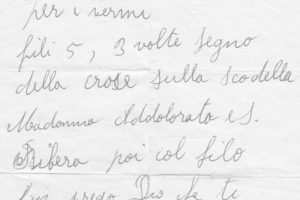 per i vermi
fili 5, 3 volte segno
della croce sulla scodella
Madonna Addolorato e S.
poi col filo
Dio che te